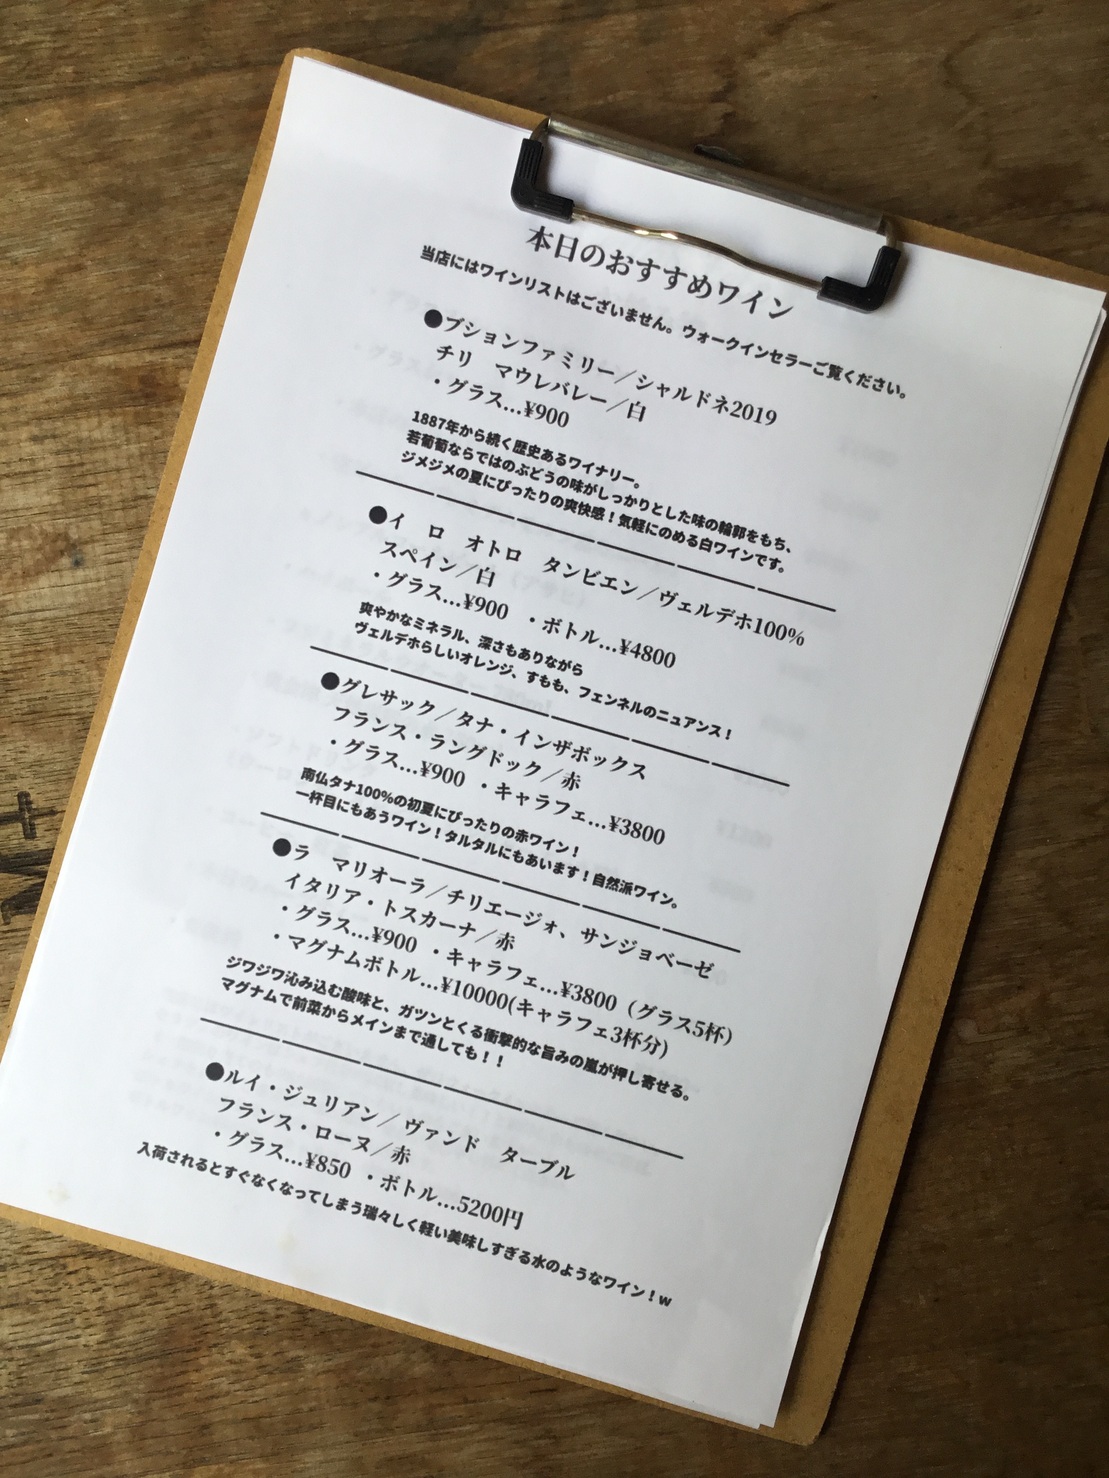 本日のおすすめワイン
当店にはワインリストはございません。ウォークインセラーご覧ください。
●ブションファミリー／シャルドネ2019
チリ　マウレバレー／白
・グラス...¥900
1887年から続く歴史あるワイナリー。
若葡萄ならではのぶどうの味がしっかりとした味の輪郭をもち、
ジメジメの夏にぴったりの爽快感！気軽にのめる白ワインです。
●イ　ロ　オトロ　タンビエン／ヴェルデホ100%
スペイン／白
・グラス...¥900　・ボトル...¥4800
爽やかなミネラル、深さもありながら
ヴェルデホらしいオレンジ、すもも、フェンネルのニュアンス！
●グレサック／タナ・インザボックス
フランス・ラングドック／赤
・グラス...¥900 ・キャラフェ...¥3800
南仏タナ100%の初夏にぴったりの赤ワイン！
一杯目にもあうワイン！タルタルにもあいます！自然派ワイン。
●ラ　マリオーラ／チリエージォ、サンジョベーゼ
イタリア・トスカーナ／赤
・グラス...¥900 ・キャラフェ...¥3800（グラス5杯）
・マグナムボトル...¥10000(キャラフェ3杯分)
ジワジワ沁み込む酸味と、ガツンとくる衝撃的な旨みの嵐が押し寄せる。
マグナムで前菜からメインまで通しても！！
●ルイ・ジュリアン／ヴァンド　ターブル
フランス・ローヌ／赤
・グラス...¥850 ・ボトル...5200円
入荷されるとすぐなくなってしまう瑞々しく軽い美味しすぎる水のようなワイン！w